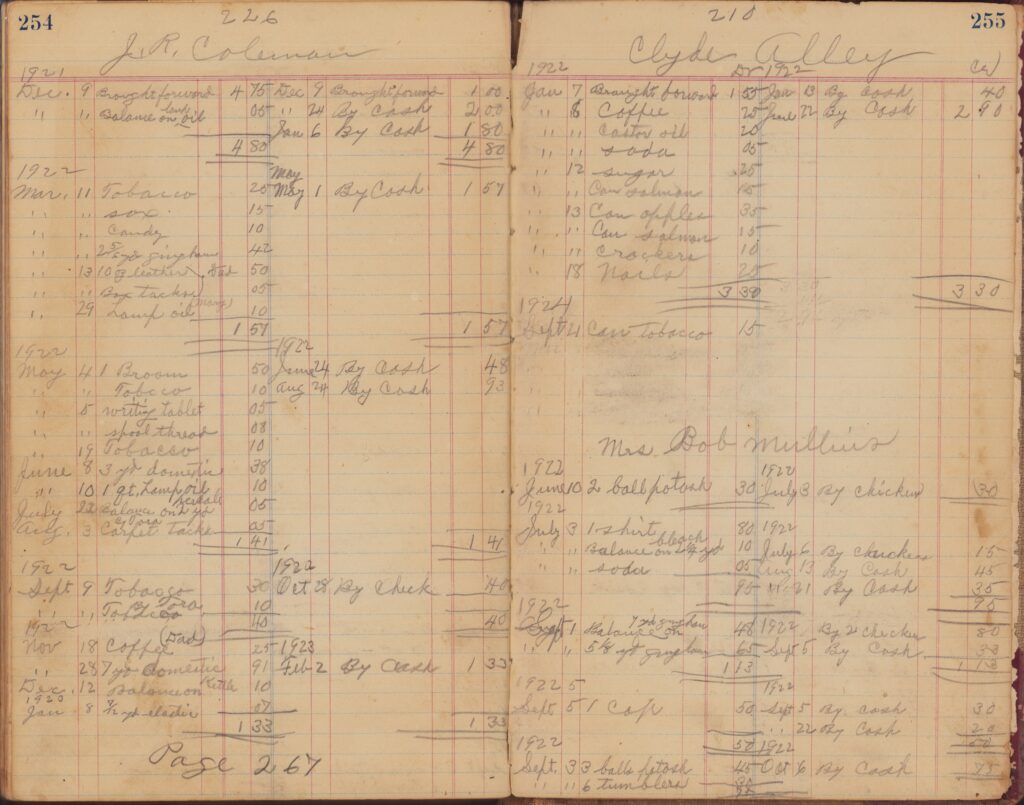 254
226
J. R. Coleman
1921
Dec. 9 Brought forward 4 75 Dec 9 Brought forward 1 00
" " Balance on oil 05 " 24 By Cash 2 00
Jan 6 By Cash 1 80
4 80 4 80
1922
May
Mar. 11 Tobacco 25 May 1 By Cash 1 57
" " sox 15
" " Candy 10
" " gingham 42
" 13 leather Dad 50
" " Box tacks 05
" 29 Lamp oil 10
1 57 1 57
1922 1922
May 4 1 Broom 50 June 24 By Cash 48
" Tobaco 10 Aug 24 By Cash 93
" 5 writing tablet 05
" " spool thread 08
" 19 Tobacco 10
June 8 3 yd domestic 38
" 10 1 qt. Lamp oil 10
July 22 Balance on 2 yd 05
Aug. 3 Carpet tacks 05
1 41 1 41
1922 1922
Sept 9 Tobacco 30 Oct 28 By Check 40
" " Tobacco 10
40 40
1922
Nov 18 Coffee (Dad) 25 1923
" 28 7 yd domestic 91 Feb 2 By Cash 1 33
Dec. 12 Balance on Kettle 10
1923
Jan 8 yd elastic 07
1 33 1 33
Page 267
255
210
Clyde Alley
1922 Dr 1922 Cr
Jan 7 Brought forward 1 55 Jan 13 By Cash 40
" 8 Coffee 25 June 22 By Cash 2 90
" " Castor oil 20
" " soda 05
" 12 sugar 25
" " Can salmon 15
" 13 Can apples 35
" " Can salmon 15
" " Crackers 10
" 18 Nails 25
3 30 3 30
1924
Sept 4 Can tobacco 15
Mrs Bob Mullins
1922 1922
June 10 2 ball potash 30 July 3 By chicken 30
1922
July 3 1 shirt 80 1922
" " Balance on bleach 10 July 6 By Chickens 15
" " soda 05 Aug 13 By Cash 45
95 " 21 By Cash 35
1922 95
Sept 1 Balance on gingham 48 1922 By 2 chicken 80
" " 5 yd gingham 65 Sept 5 By Cash 33
1 13 1 13
1922 5 1922
Sept 5 1 Cap 50 Sept 5 By Cash 30
" 22 By Cash 20
1922 50 1922 50
Sept. 3 3 balls potash 45 Oct 6 By Cash 75
" " 6 tumblers 30